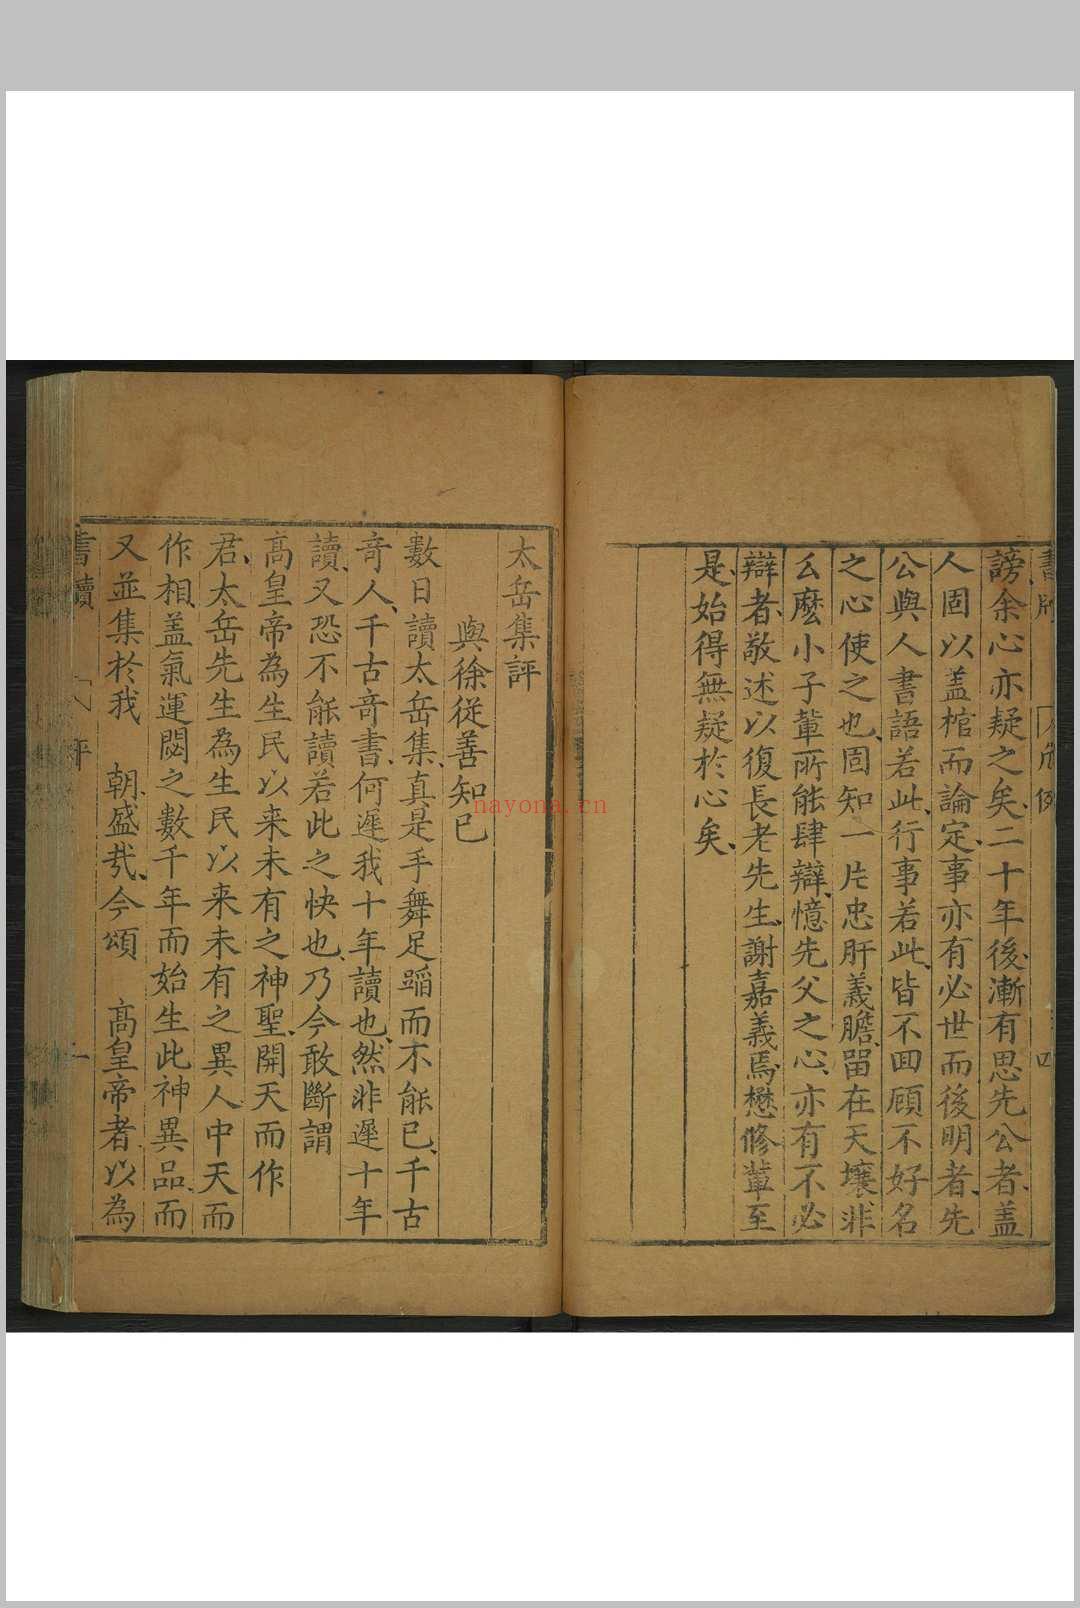 謗余心亦疑之矣二十年後漸有思先公者蓋
人固以盖棺而論定事亦有必世而後明者先
公與人書語若此行事若此皆不囬顧不好名
之心使之也固知一片忠肝義膽畱在天壤非
么麼小子輩所能肆辯憶先父之心亦有不必
辯者敬述以復長老先生謝嘉義焉懋修輩至
是始得無疑於心矣
太岳集評
與徐從善知已
數日讀太岳集真是手舞足蹈而不能已千古
竒人千古竒書何遲我十年讀也然非遲十年
讀又恐不能讀若此之快也乃今敢斷謂
髙皇帝為生民以来未有之神聖開天而作
君太岳先生為生民以来未有之異人中天而
作相盖氣運閟之數千年而始生此神異品而
又並集於我 朝盛㢤今頌 髙皇帝者以為
書牘 評 一
nayona.cn